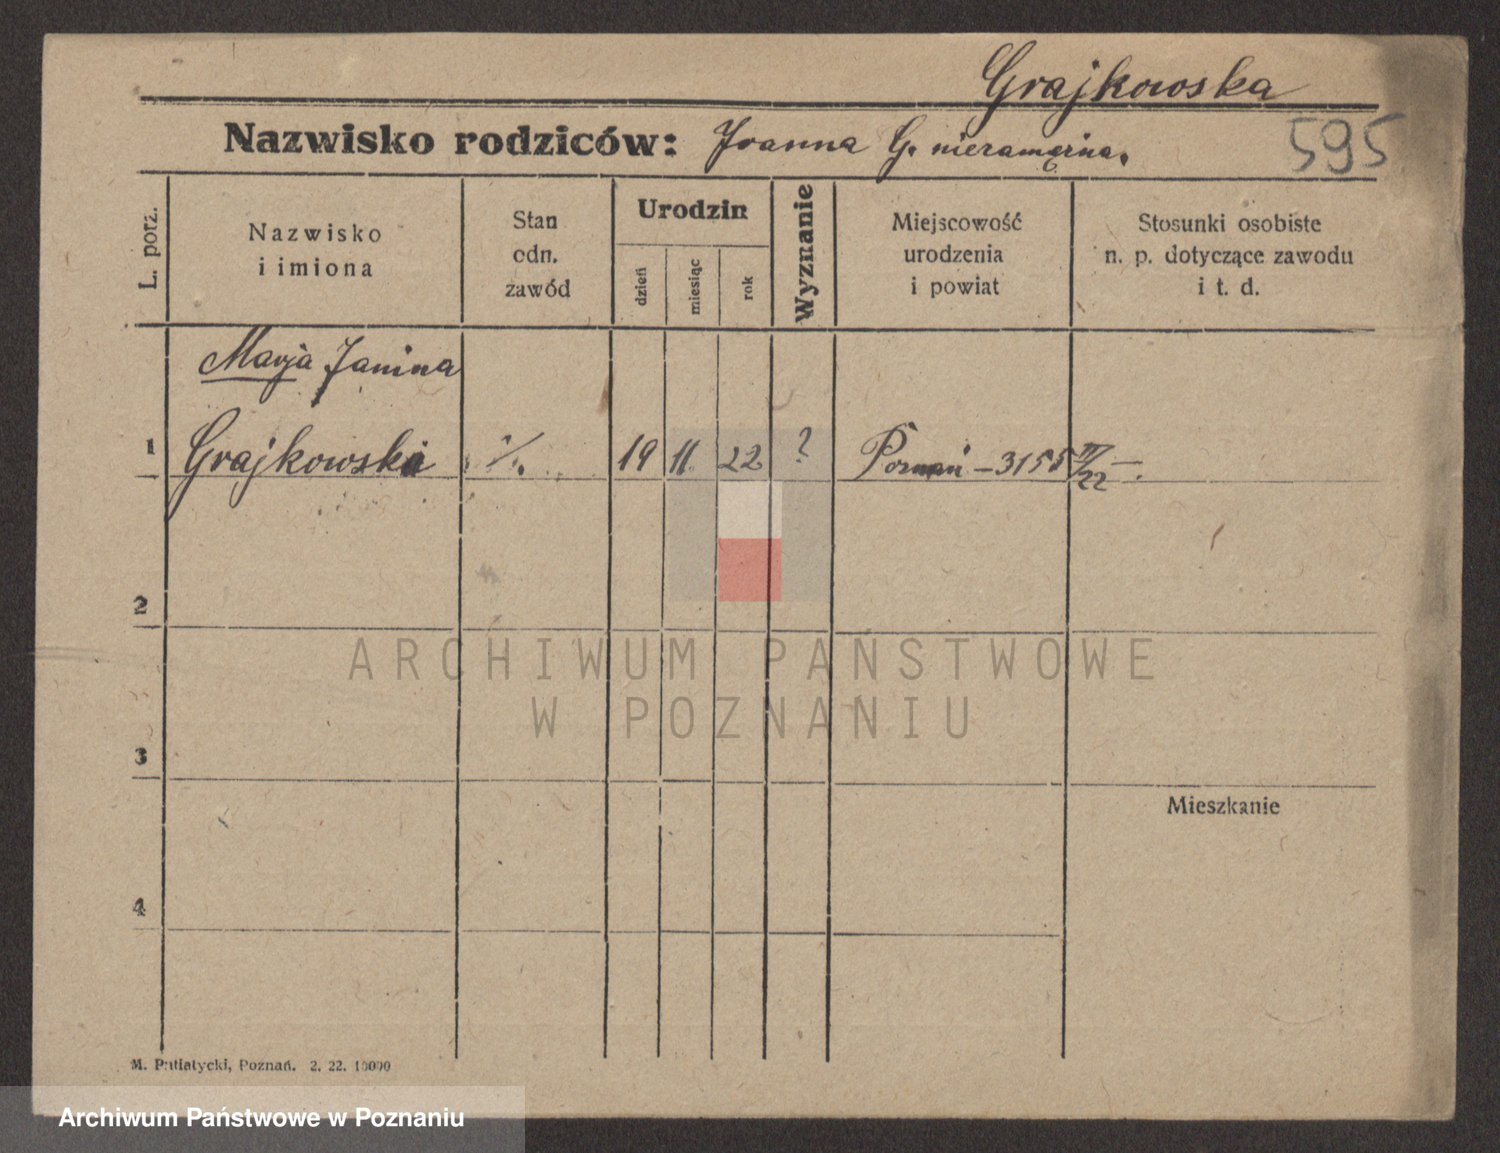 Grajkowska
Nazwisko rodziców: Joanna G. niezamężna.
595
L. porz.
Nazwisko
i imiona
Stan
odn.
zawód
Urodzin
dzień
miesiąc
rok
Wyznanie
Miejscowość
urodzenia
i powiat
Stosunki osobiste
n. p. dotyczące zawodu
i t. d.
Marja Janina
1 Grajkowska 1/. 19 11 22 ? Poznań – 3155 IV/22 –
2
ARCHIWUM PAŃSTWOWE
W POZNANIU
3
Mieszkanie
4
M. Putiatycki, Poznań. 2. 22. 10000
Archiwum Państwowe w Poznaniu